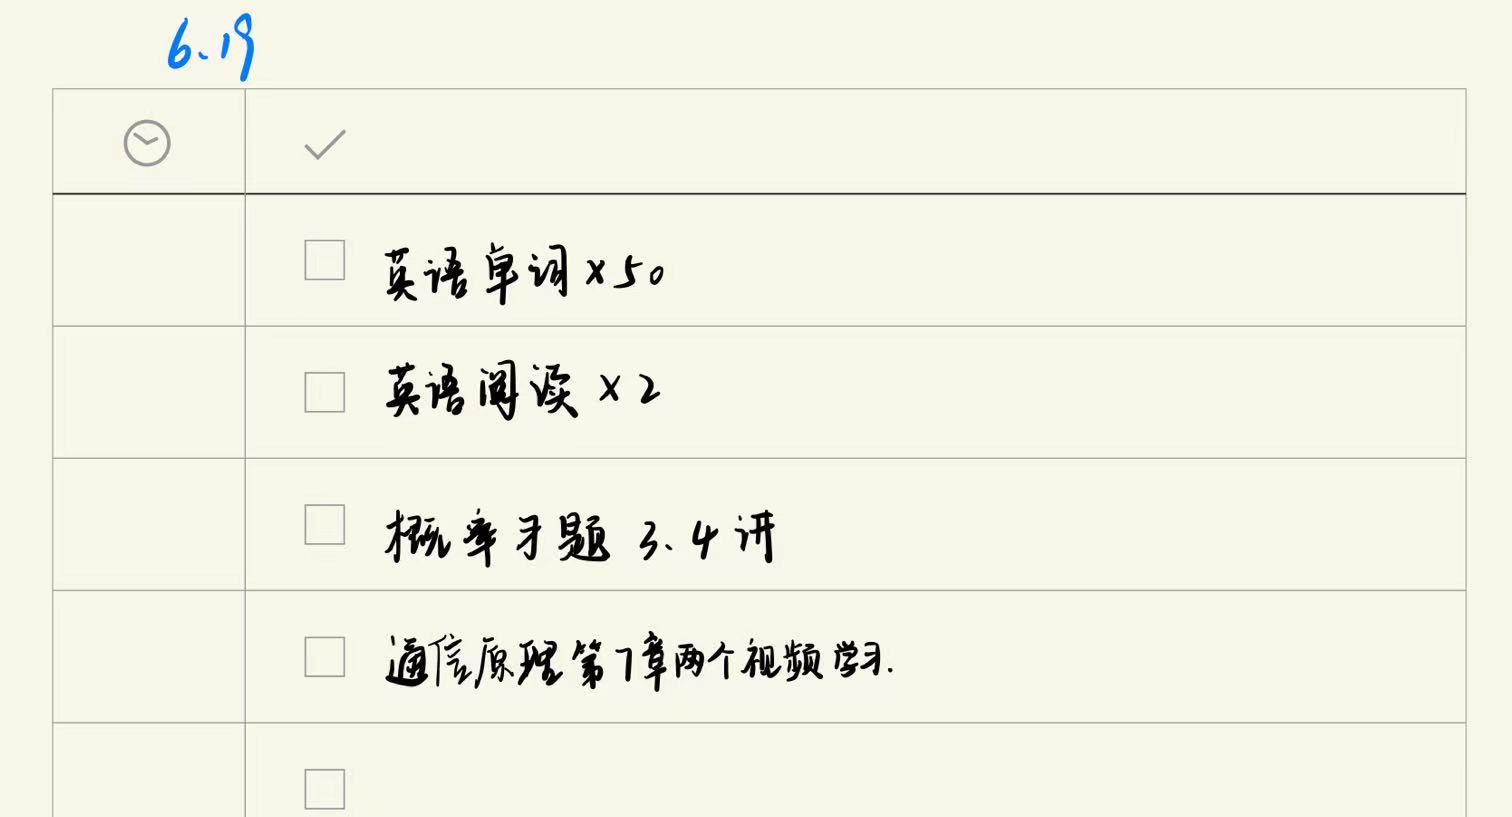 6.19
英语单词×50
英语阅读×2
概率习题 3.4讲
通信原理第7章两个视频学习.